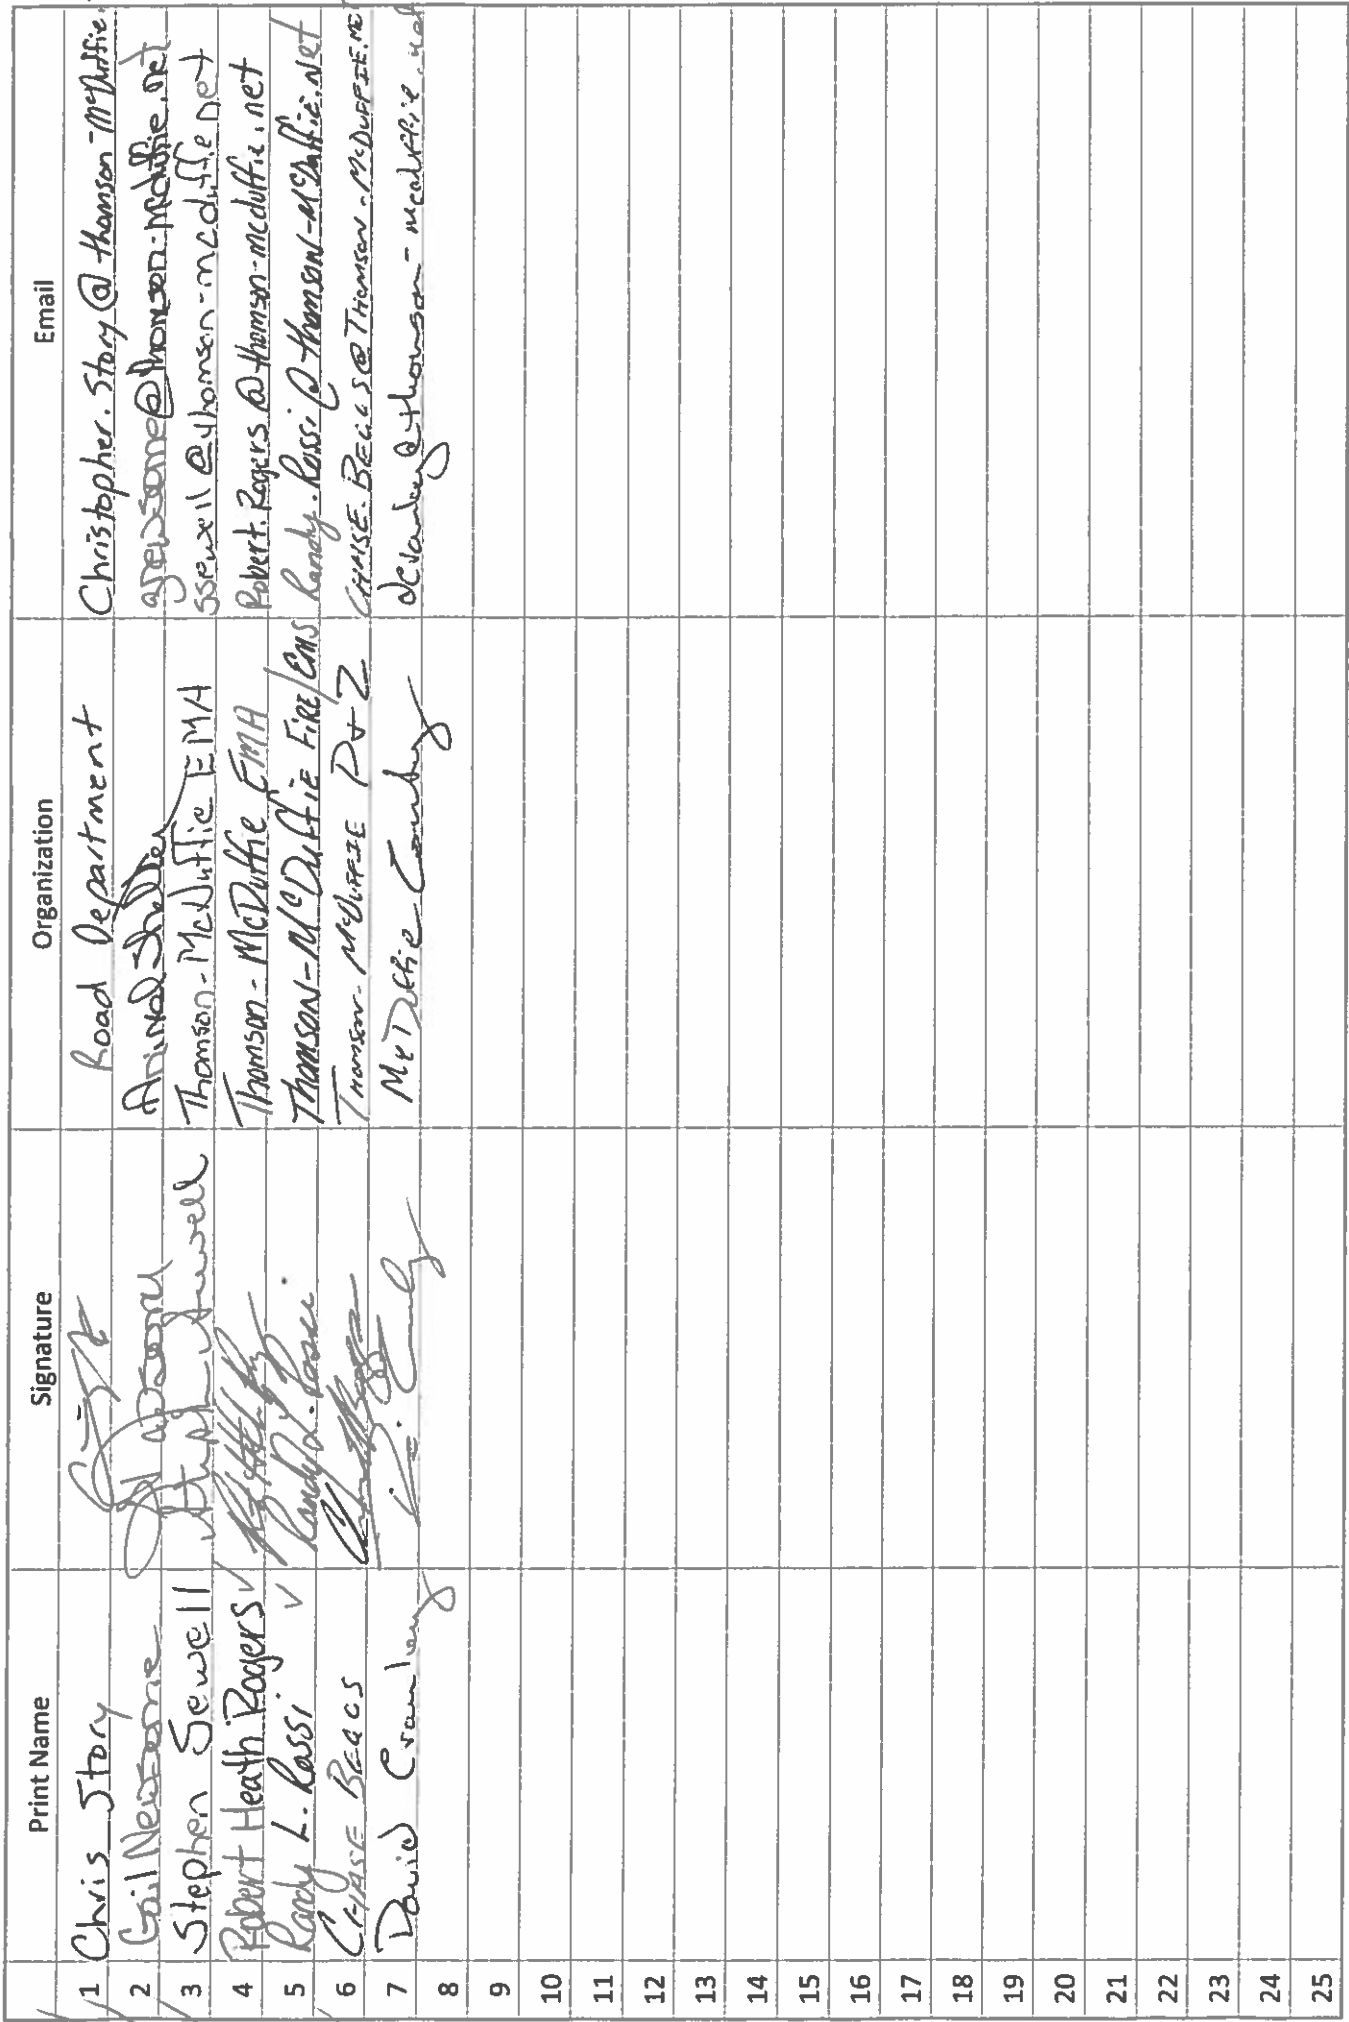 Print Name Signature Organization Email
1 Chris Story Road Department Christopher.Story@thomson-McDuffie.
2 Gail Newsome Animal Shelter gnewsome@thomson-mcduffie.net
3 Stephen Sewell Thomson-McDuffie EMA ssewell@thomson-mcduffie.net
4 Robert Heath Rogers ✓ Thomson-McDuffie EMA Robert.Rogers@thomson-mcduffie.net
5 Randy L. Rossi ✓ Randy L. Rossi Thomson-McDuffie Fire/EMS Randy.Rossi@thomson-McDuffie.net
6 CHASE BEGGS THOMSON-McDUFFIE P+Z CHASE.BEGGS@THOMSON-McDUFFIE.NE
7 David Crawley McDuffie County dcrawley@thomson-mcduffie.net
8
9
10
11
12
13
14
15
16
17
18
19
20
21
22
23
24
25